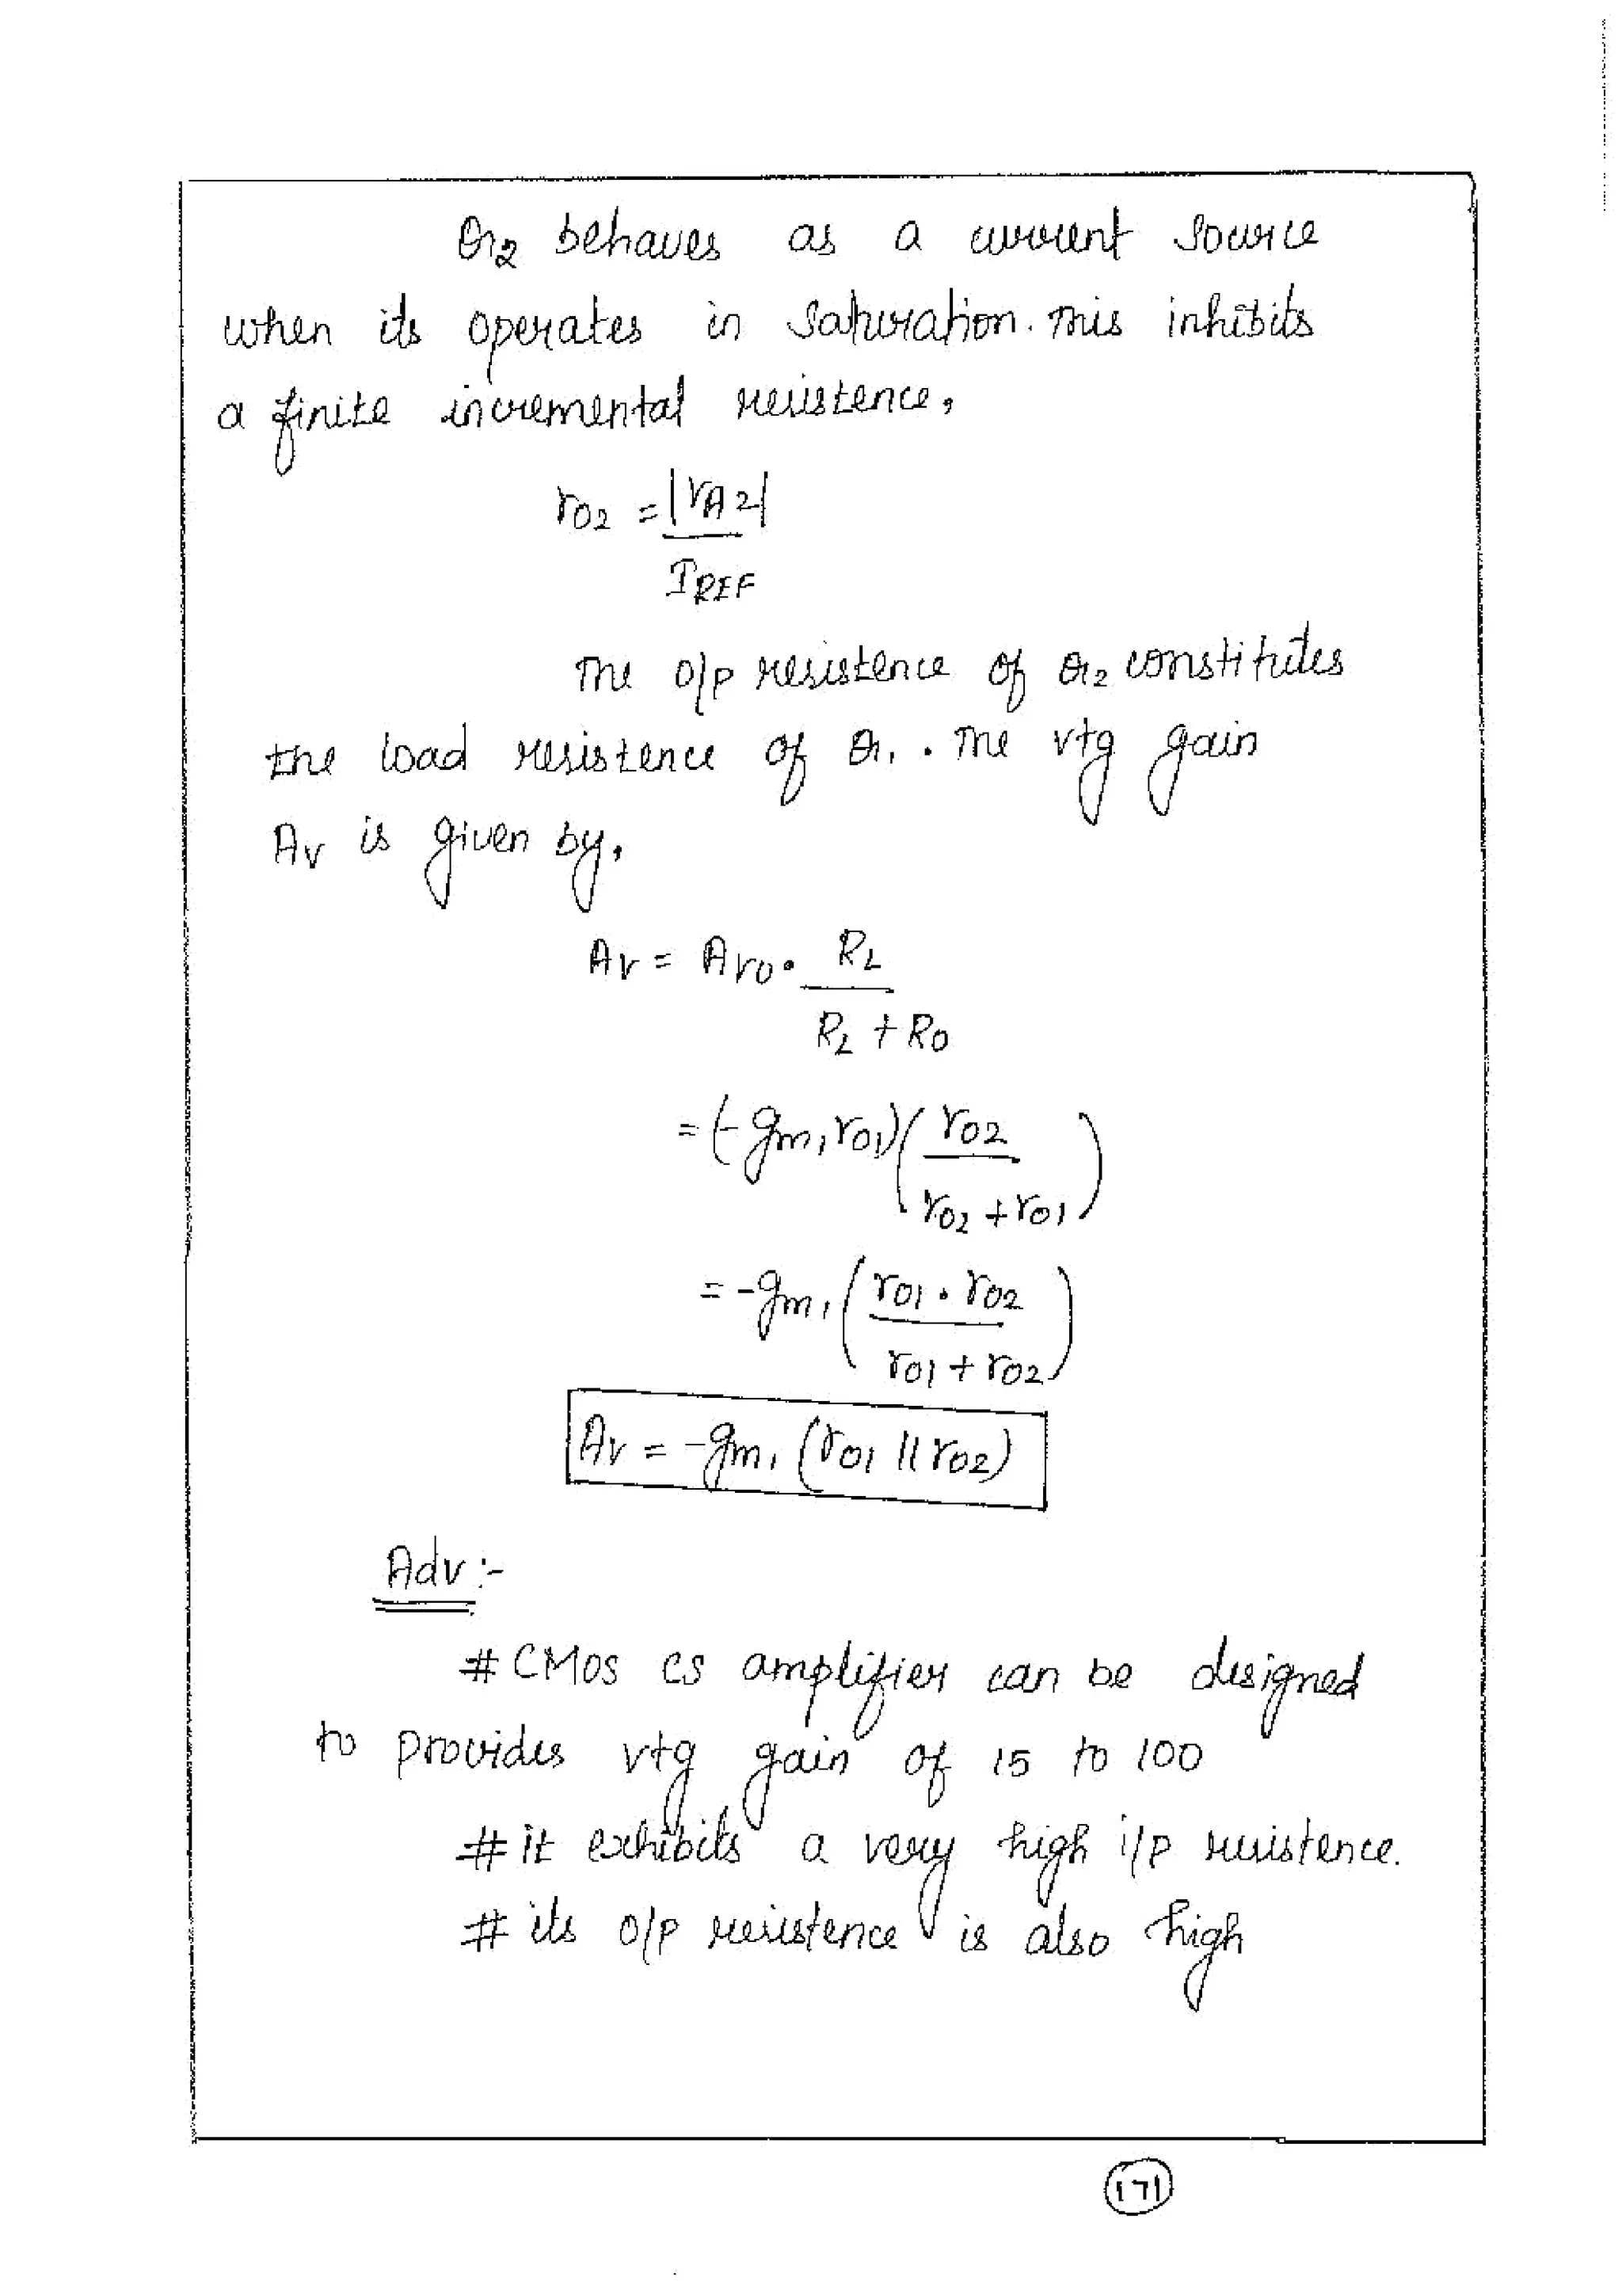 Q2 behaves as a current source
when its operates in saturation. This inhibits
a finite incremental resistence,
ro2 = |VA2|
IREF
The o/p resistence of Q2 constitutes
the load resistence of Q1. The vtg gain
Av is given by,
Av = Avo. RL
RL + Ro
= (-gm1 ro1) ( ro2
ro2 + ro1 )
= -gm1 ( ro1 . ro2
ro1 + ro2 )
Av = -gm1 (ro1 || ro2)
Adv :-
# CMOS CS amplifier can be designed
to provides vtg gain of 15 to 100
# it exhibits a very high i/p resistence.
# its o/p resistence is also high
171